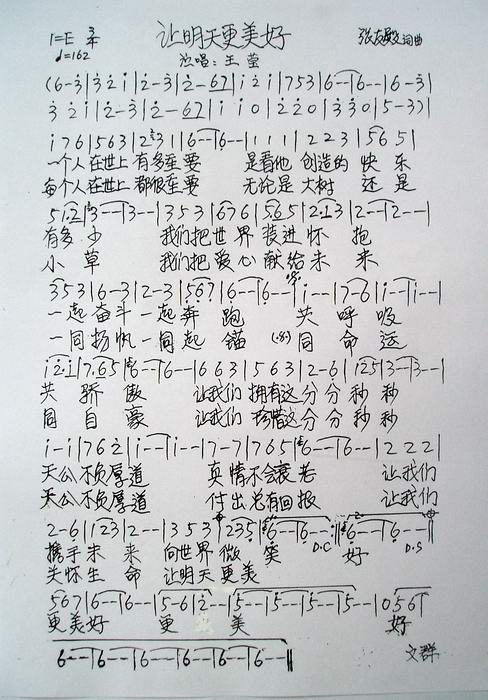 让明天更美好
1=E 3/4
张友殿词曲
♩=162
演唱：王莹
(6-3|321|2-3|2-67|121|753|6--|6--|6-3|
321|2-3|2-67|110|220|330|5-3)|
176|563|231|6--|6--|111|223|565|
一个人在世上有多重要 是看他创造的快乐
每个人在世上都很重要 无论是大树还是
512|3--|3--|353|676|565|213|2--|2--|
有多少 我们把世界装进怀抱
小草 我们把爱心献给未来
353|6-3|2-3|567|6--|6--|1--|7-6|1--|1--|
一起奋斗一起奔跑 共呼吸
一同扬帆一同起锚 同命运
121|765|6--|6--|663|563|2-6|125|3--|3--|
共骄傲 让我们拥有这分分秒秒
同自豪 让我们珍惜这分分秒秒
1-1|762|1--|1--|7-7|765|6--|6--|222|
天公不负厚道 真情不会衰老 让我们
天公不负厚道 付出总有回报 让我们
2-6|123|2--|353|235|6--|6--:|6--|6--||
携手未来 向世界微笑 D.C 好 D.S
关怀生命 让明天更美
567|6--|6--|5-6|2--|5--|5--|5--|5--|056|
更美好 更美 好
6--|6--|6--|6--|6--|6--||
文群